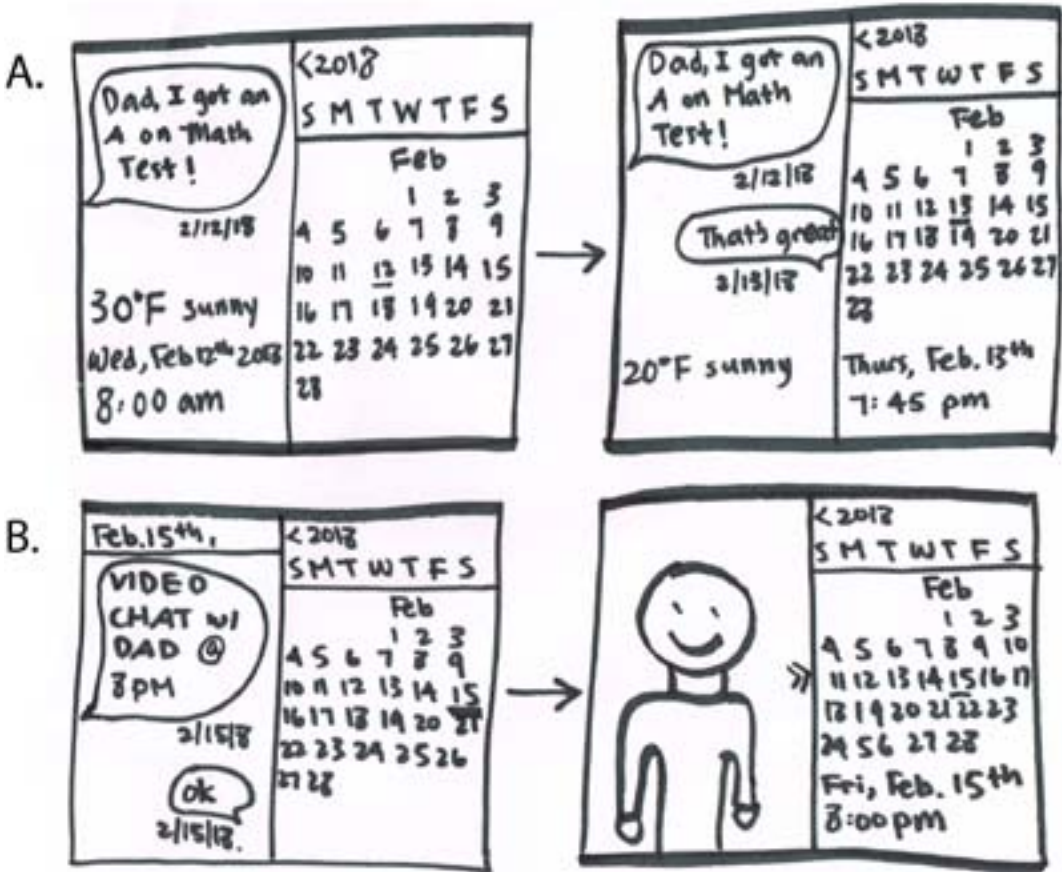 A.
Dad, I got an
A on Math
Test!
2/12/18
30°F sunny
Wed, Feb 12th 2018
8:00 am
<2018
S M T W T F S
Feb
1 2 3
4 5 6 7 8 9
10 11 12 13 14 15
16 17 18 19 20 21
22 23 24 25 26 27
28
Dad, I got an
A on Math
Test!
2/12/18
That's great
2/13/18
20°F sunny
<2018
S M T W T F S
Feb
1 2 3
4 5 6 7 8 9
10 11 12 13 14 15
16 17 18 19 20 21
22 23 24 25 26 27
28
Thurs, Feb. 13th
7:45 pm
B.
Feb. 15th,
VIDEO
CHAT w/
DAD @
8PM
2/15/8
ok
2/15/18.
<2018
S M T W T F S
Feb
1 2 3
4 5 6 7 8 9
10 11 12 13 14 15
16 17 18 19 20 21
22 23 24 25 26
27 28
<2018
S M T W T F S
Feb
1 2 3
4 5 6 7 8 9 10
11 12 13 14 15 16 17
18 19 20 21 22 23
24 5 6 27 28
Fri, Feb. 15th
8:00 pm